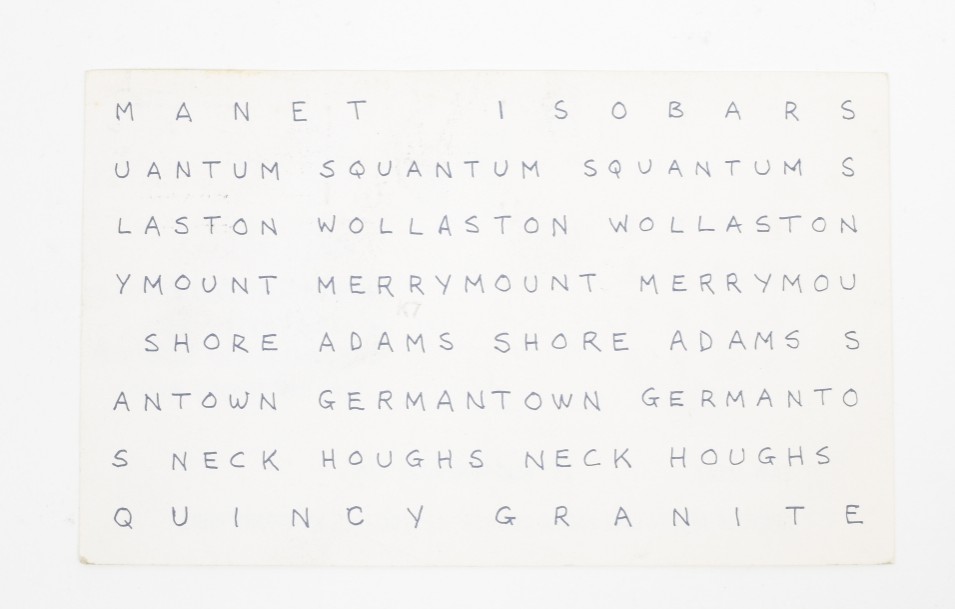 MANET ISOBARS
UANTUM SQUANTUM SQUANTUM S
LASTON WOLLASTON WOLLASTON
YMOUNT MERRYMOUNT MERRYMOU
SHORE ADAMS SHORE ADAMS S
ANTOWN GERMANTOWN GERMANTO
S NECK HOUGHS NECK HOUGHS
QUINCY GRANITE